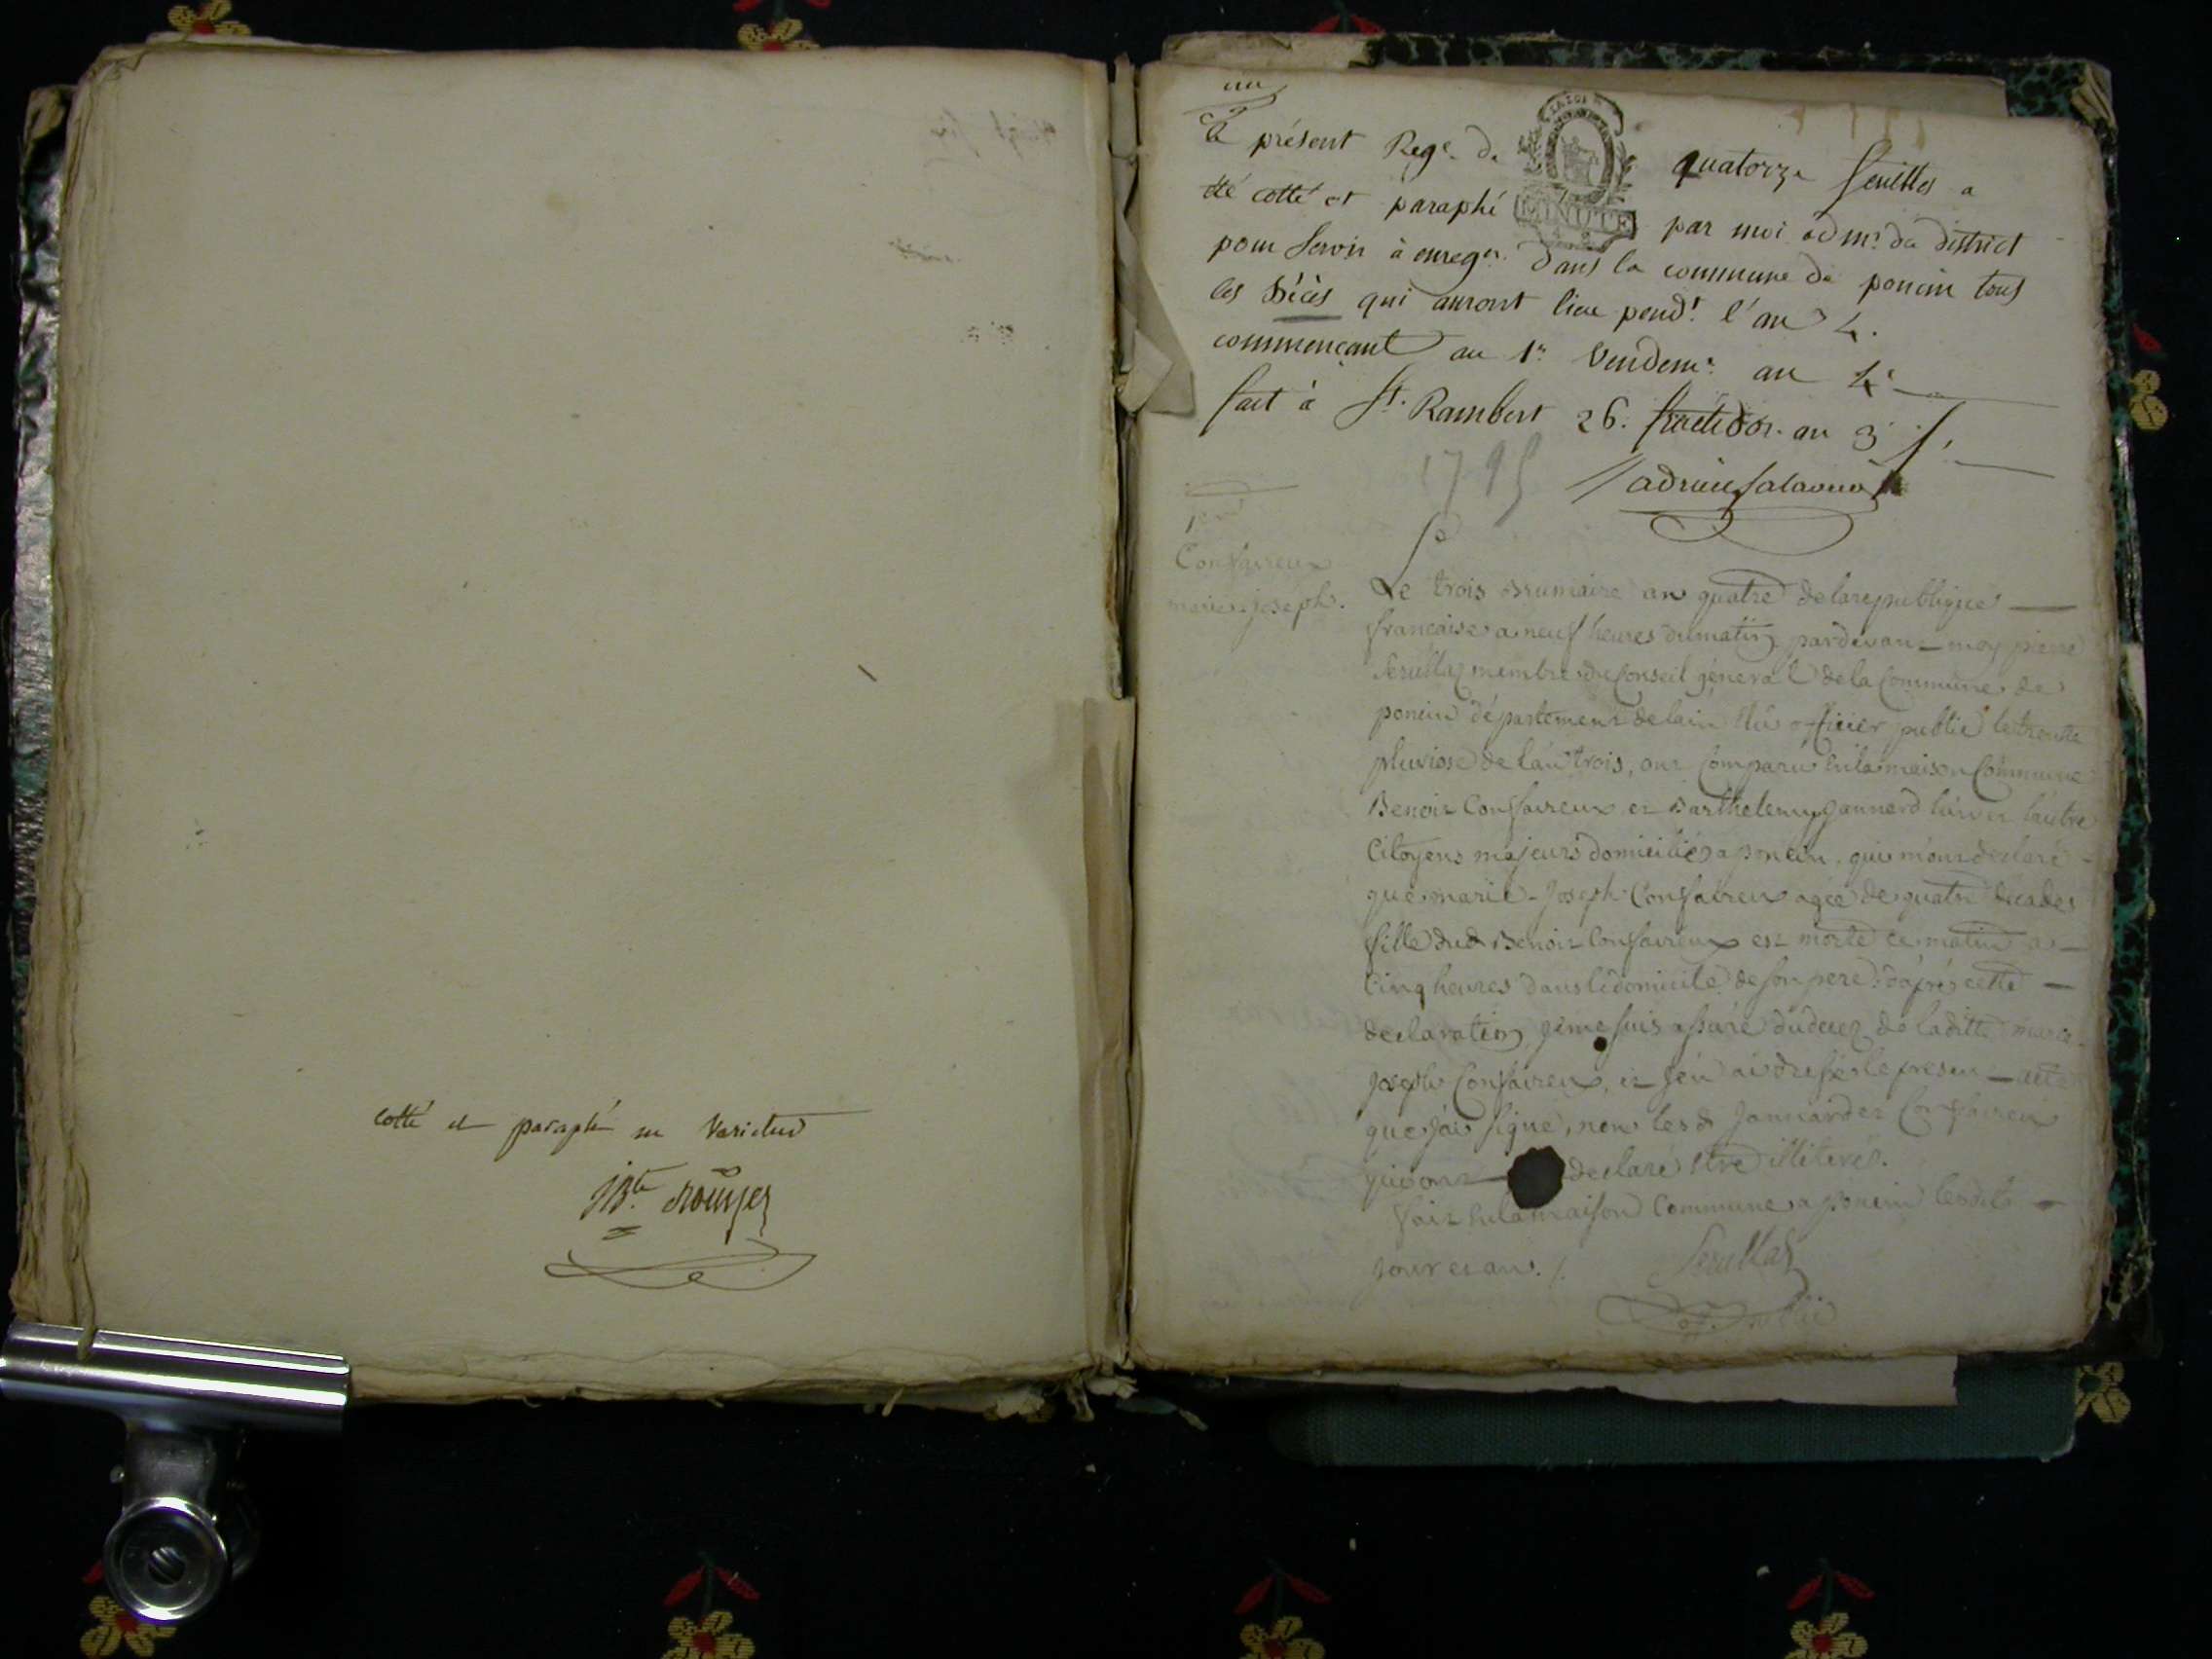 cotté et paraphé ne varietur
JBte
un
Ce présent Rege. de quatorze feuilles a
été cotté et paraphé par moi adm.r du district
MINUTE
pour servir à enreg.er dans la commune de poncin tous
les Décès qui auront lieu pend.t l'an 4.
commençant au 1er Vendem.re an 4e
fait à St. Rambert 26. fructidor. an 3e
1795
1er
Confaireux
marie-joseph.
Le trois Brumaire an quatre delarepubligue
francaise a neuf heures dumatin pardevant moy pierre
Serullaz membre du Conseil géneral dela Commune de
poncin département delain élu officier public le trente
pluviose de lan trois, ont comparu en la maison Commune
Benoit Confaireux et Barthelemy Jannerd lun et lautre
Citoyens majeurs domiciliés a poncin, qui mont declaré
que marie-Joseph Confaireux agée de quatre décades
fille dud Benoit Confaireux est morte ce matin a
Cinq heures dans le domicile de son pere: dapré cette
declaration je me suis assuré du decez de laditte marie
joseph Confaireux, et jen ai dressé le present acte
que jai signé, non lesd Jannard et Confaireux
qui ont declaré etre illiterés.
fait en la maison Commune a poncin lesdits
jour et an ./.
Serullaz
of. public